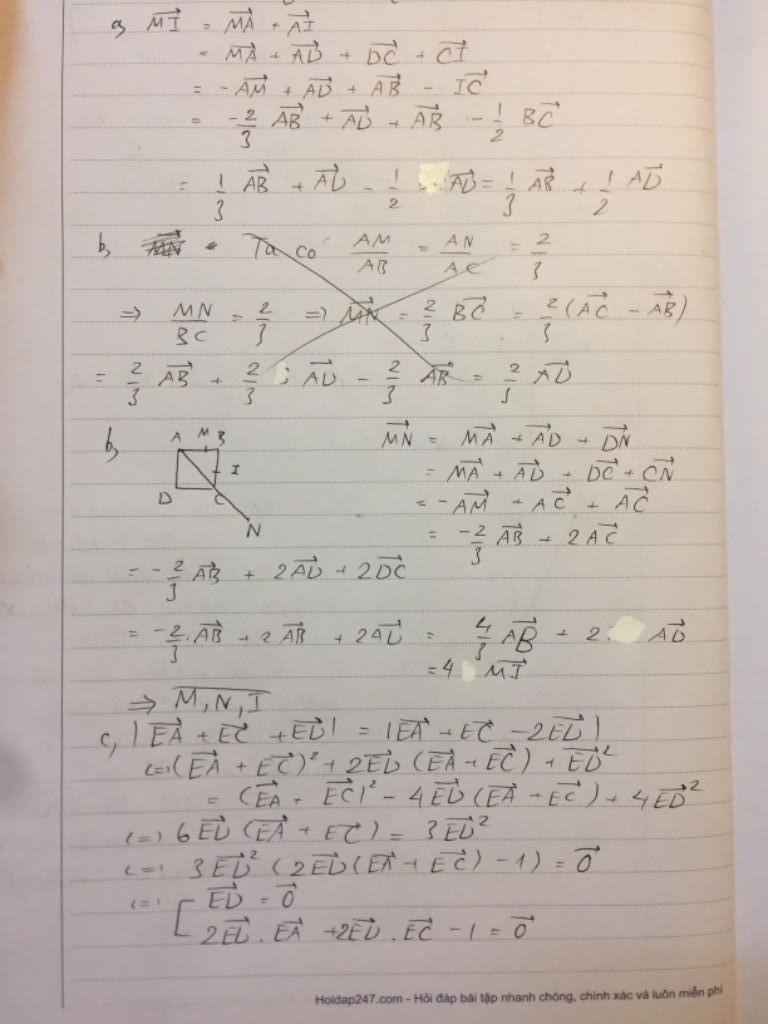 a, MI→ = MA→ + AI→
= MA→ + AD→ + DC→ + CI→
= -AM→ + AD→ + AB→ - IC→
= -2/3 AB→ + AD→ + AB→ - 1/2 BC→
= 1/3 AB→ + AD→ - 1/2 AD→ = 1/3 AB→ + 1/2 AD→
b, Ta có AM/AB = AN/AC = 2/3
⇒ MN/BC = 2/3 ⇒ MN→ = 2/3 BC→ = 2/3 (AC→ - AB→)
= 2/3 AB→ + 2/3 AD→ - 2/3 AB→ = 2/3 AD→
b,
A M B
I
D C
N
MN→ = MA→ + AD→ + DN→
= MA→ + AD→ + DC→ + CN→
= -AM→ + AC→ + AC→
= -2/3 AB→ + 2AC→
= -2/3 AB→ + 2AD→ + 2DC→
= -2/3 . AB→ + 2AB→ + 2AD→ = 4/3 AB→ + 2. AD→
= 4 MI→
⇒ M, N, I
c, |EA→ + EC→ + ED→| = |EA→ + EC→ - 2ED→|
(=) (EA→ + EC→)² + 2ED→ (EA→ + EC→) + ED→²
= (EA→ + EC→)² - 4ED→ (EA→ + EC→) + 4ED→²
(=) 6ED→ (EA→ + EC→) = 3ED→²
(=) 3ED→² (2ED→ (EA→ + EC→) - 1) = 0→
(=) [ ED→ = 0→
2ED→ . EA→ + 2ED→ . EC→ - 1 = 0→
Hoidap247.com - Hỏi đáp bài tập nhanh chóng, chính xác và luôn miễn phí